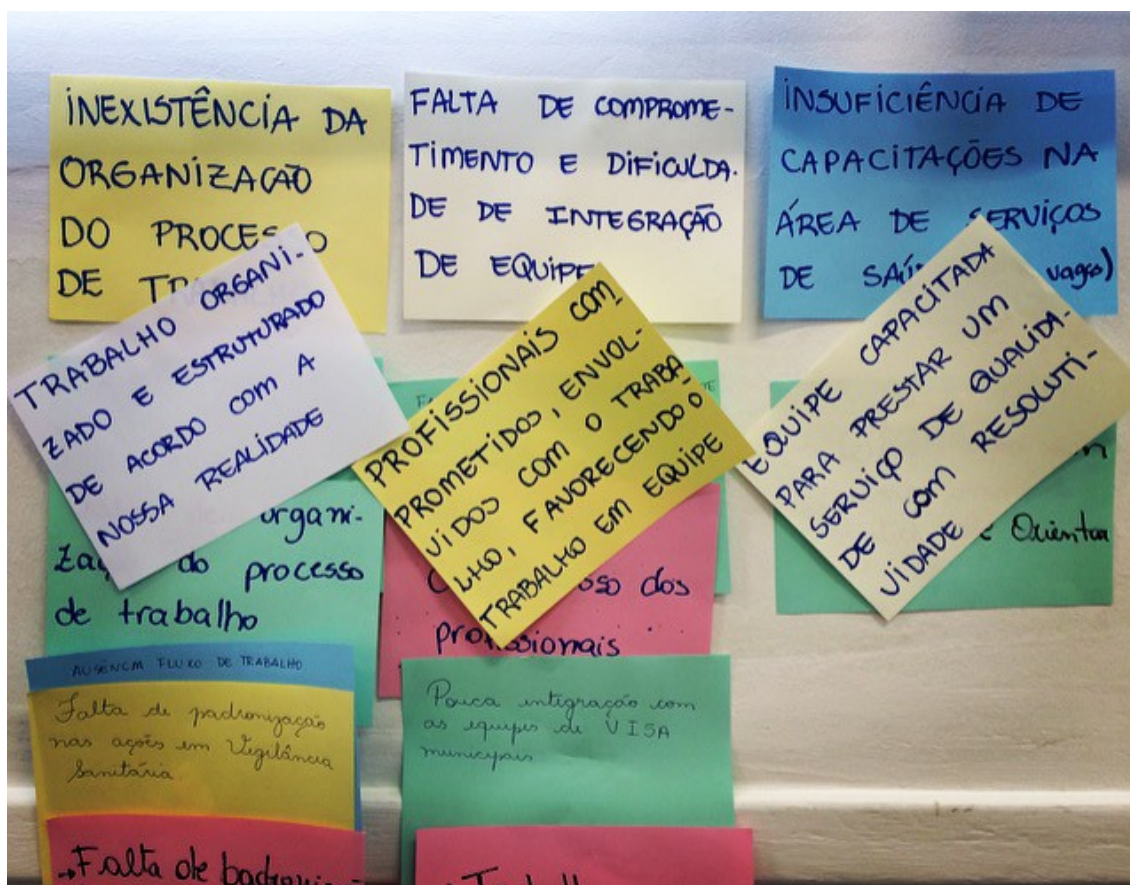 INEXISTÊNCIA DA
ORGANIZAÇÃO
DO PROCESSO
DE
FALTA DE COMPROME-
TIMENTO E DIFICULDA-
DE DE INTEGRAÇÃO
DE EQUIPE
INSUFICIÊNCIA DE
CAPACITAÇÕES NA
ÁREA DE SERVIÇOS
DE vagas)
TRABALHO ORGANI-
ZADO E ESTRUTURADO
DE ACORDO COM A
NOSSA REALIDADE
PROFISSIONAIS COM
PROMETIDOS, ENVOL-
VIDOS COM O TRABA
LHO, FAVORECENDO O
TRABALHO EM EQUIPE
EQUIPE CAPACITADA
PARA PRESTAR UM
SERVIÇO DE QUALIDA-
DE COM RESOLUTI-
VIDADE
organi-
do processo
de trabalho
dos
profissionais
e Orientar
AUSÊNCIA FLUXO DE TRABALHO
Falta de padronização
nas ações em Vigilância
Sanitária
Pouca integração com
as equipes de VISA
municipais
→Falta de